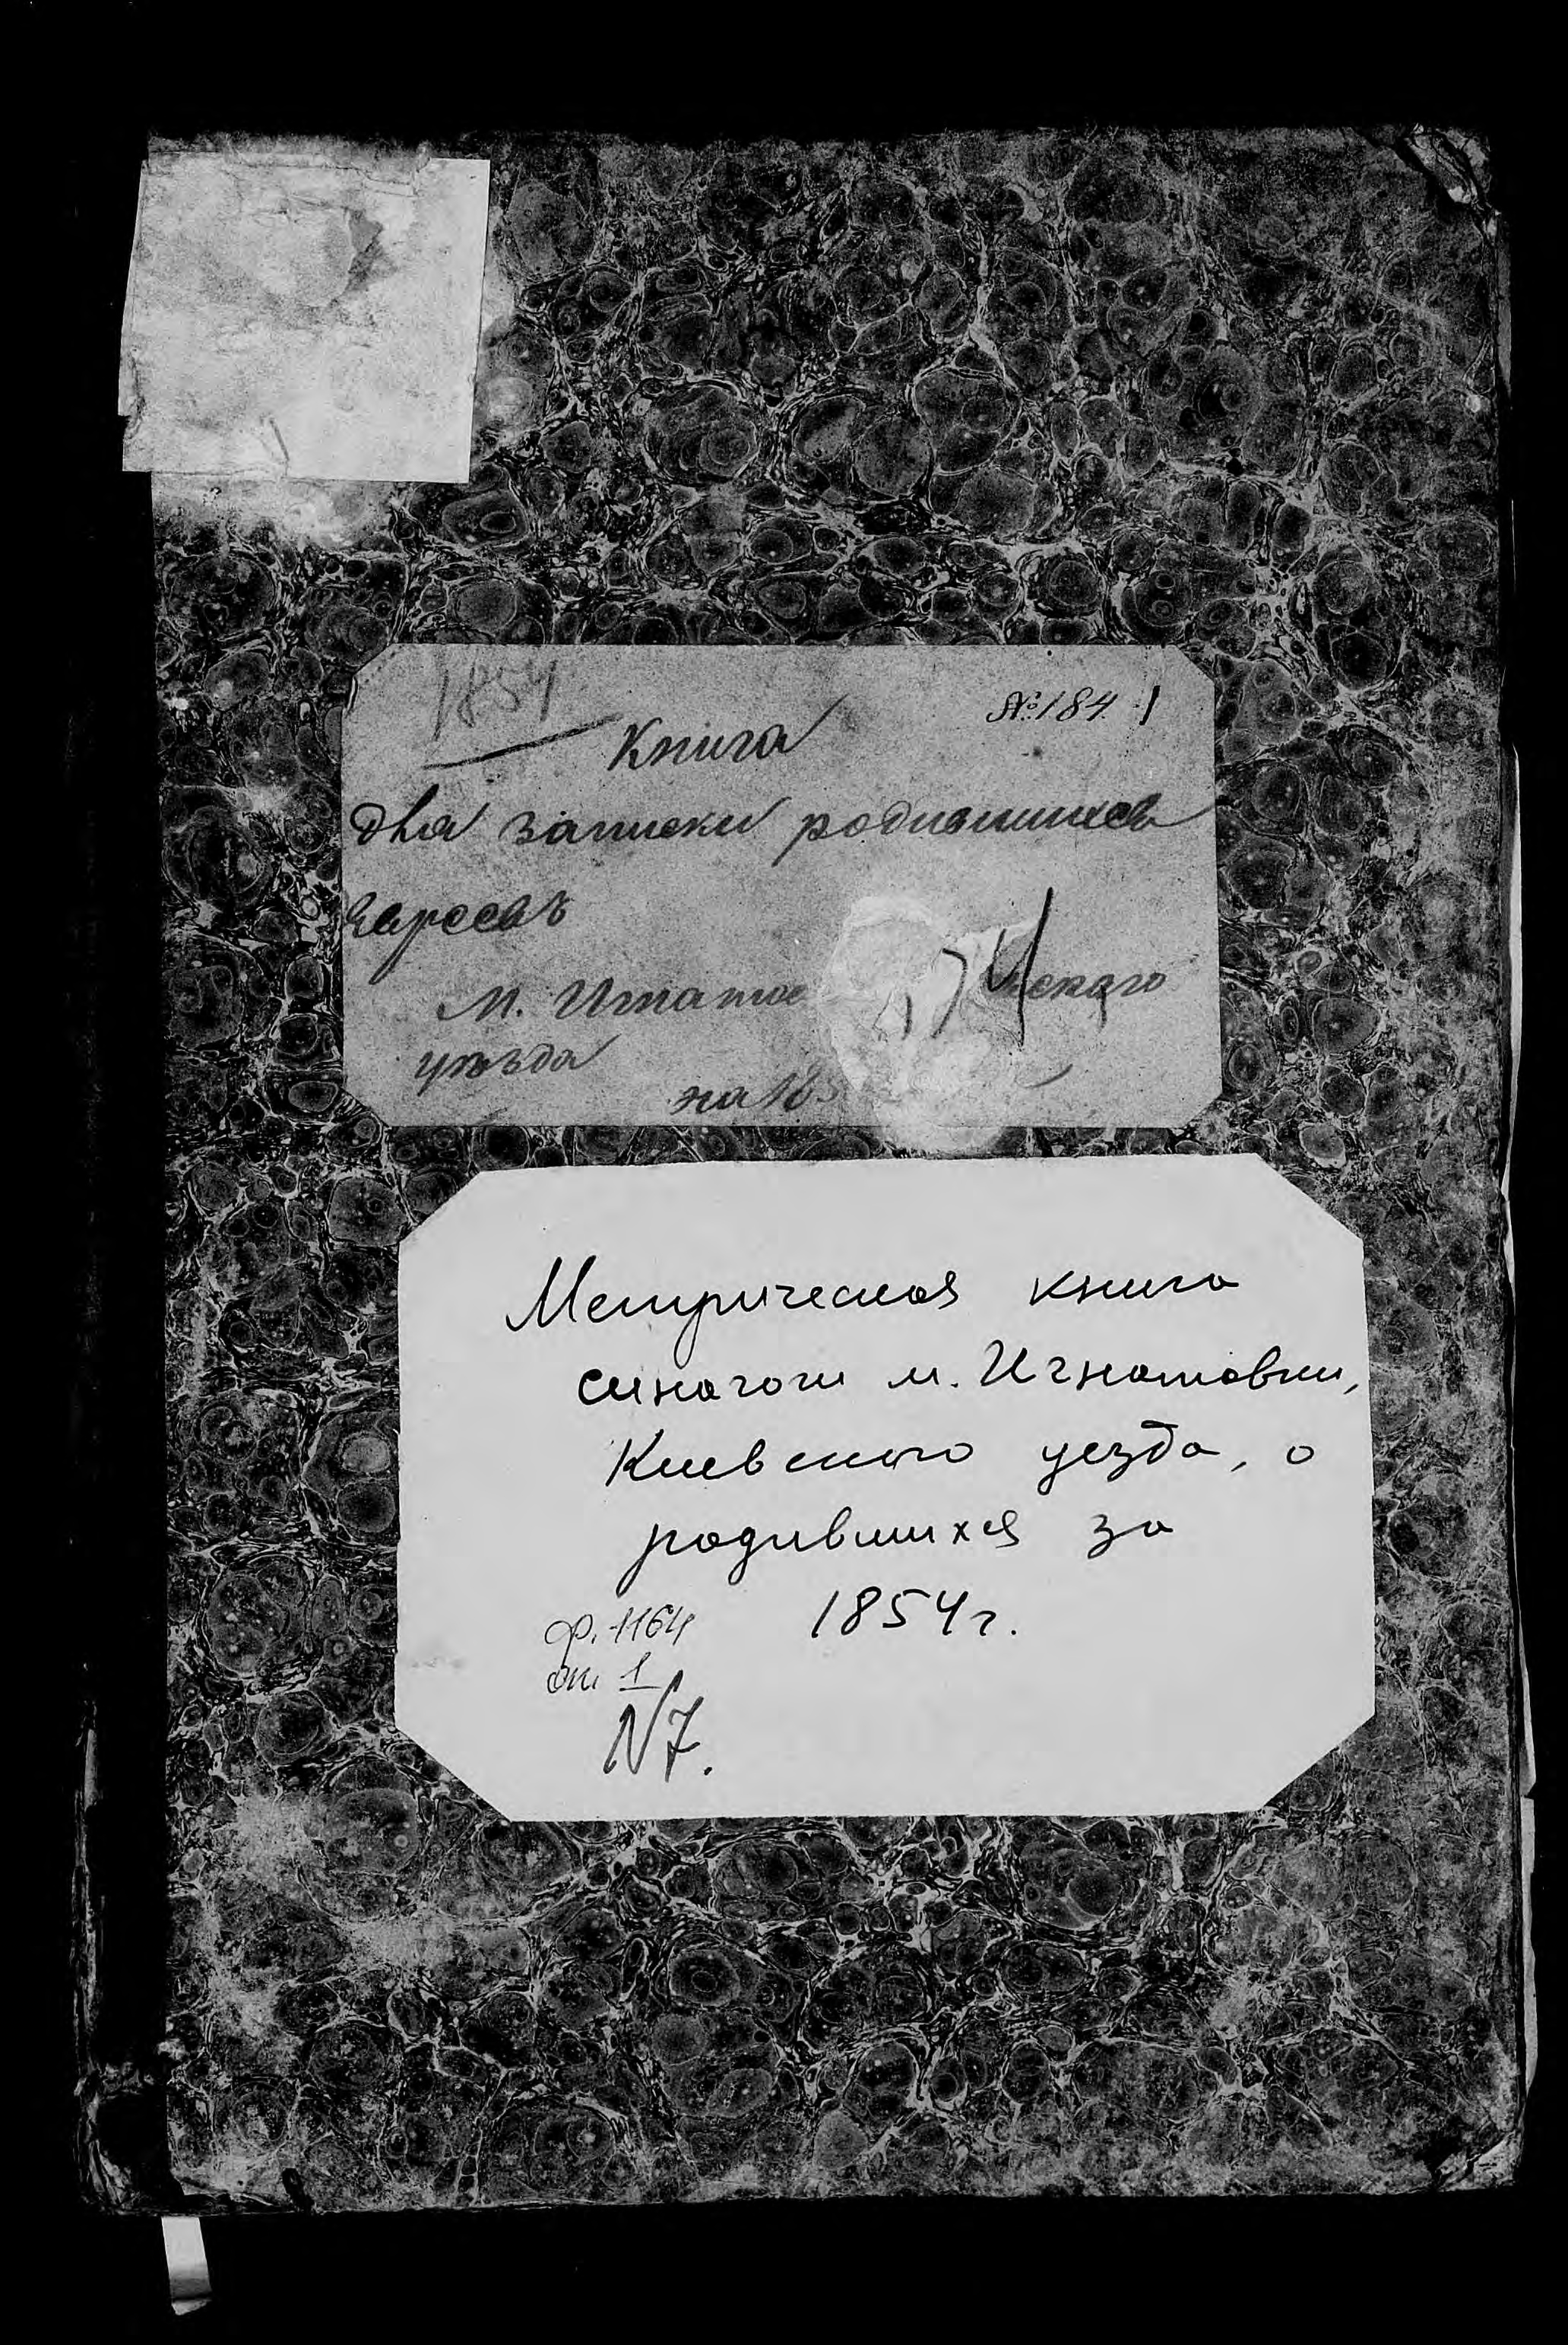 1854
№ 184. 1
Книга
для записки родившихся
Евреевъ
М. Игнатов скаго
уѣзда
на 185
Метрическая книга
синагоги м. Игнатовки,
Киевского уезда, о
родившихся за
1854 г.
ф. 1164
оп 1
N 7.